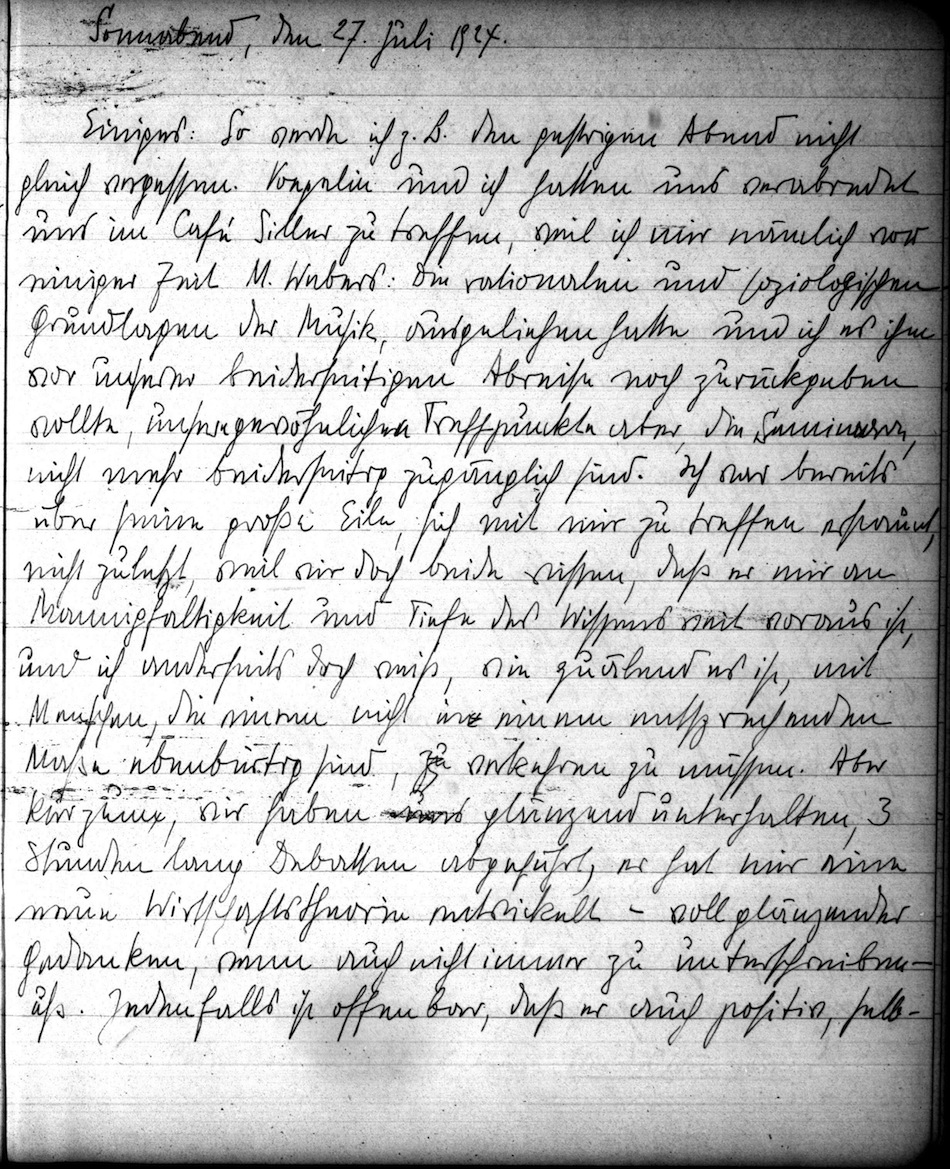 Sonnabend, den 27. Juli 1924.
Einiges: So werde ich z. B. den gestrigen Abend nicht
gleich vergessen. Voegelin und ich hatten uns verabredet
uns im Café Siller zu treffen, weil ich mir nämlich vor
einiger Zeit M. Webers: Die rationalen und soziologischen
Grundlagen der Musik, ausgeliehen hatte und ich es ihm
vor unserer beiderseitigen Abreise noch zurückgeben
wollte, unsere gewöhnlichen Treffpunkte aber, die Seminare,
nicht mehr beiderseitig zugänglich sind. Ich war bereits
über seine große Eile, sich mit mir zu treffen erstaunt,
nicht zuletzt, weil wir doch beide wissen, daß er mir an
Mannigfaltigkeit und Tiefe des Wissens weit voraus ist,
und ich anderseits doch weiß, wie quälend es ist, mit
Menschen, die einem nicht in einem entsprechenden
Maße ebenbürtig sind, zu verkehren zu müssen. Aber
kurzum, wir haben uns glänzend unterhalten, 3
Stunden lang Debatten abgeführt, er hat mir eine
neue Wirtschaftstheorie entwickelt – voll glänzender
Gedanken, wenn auch nicht immer zu unterschreiben-
. Jedenfalls ist offenbar, daß er auch positiv, selb-